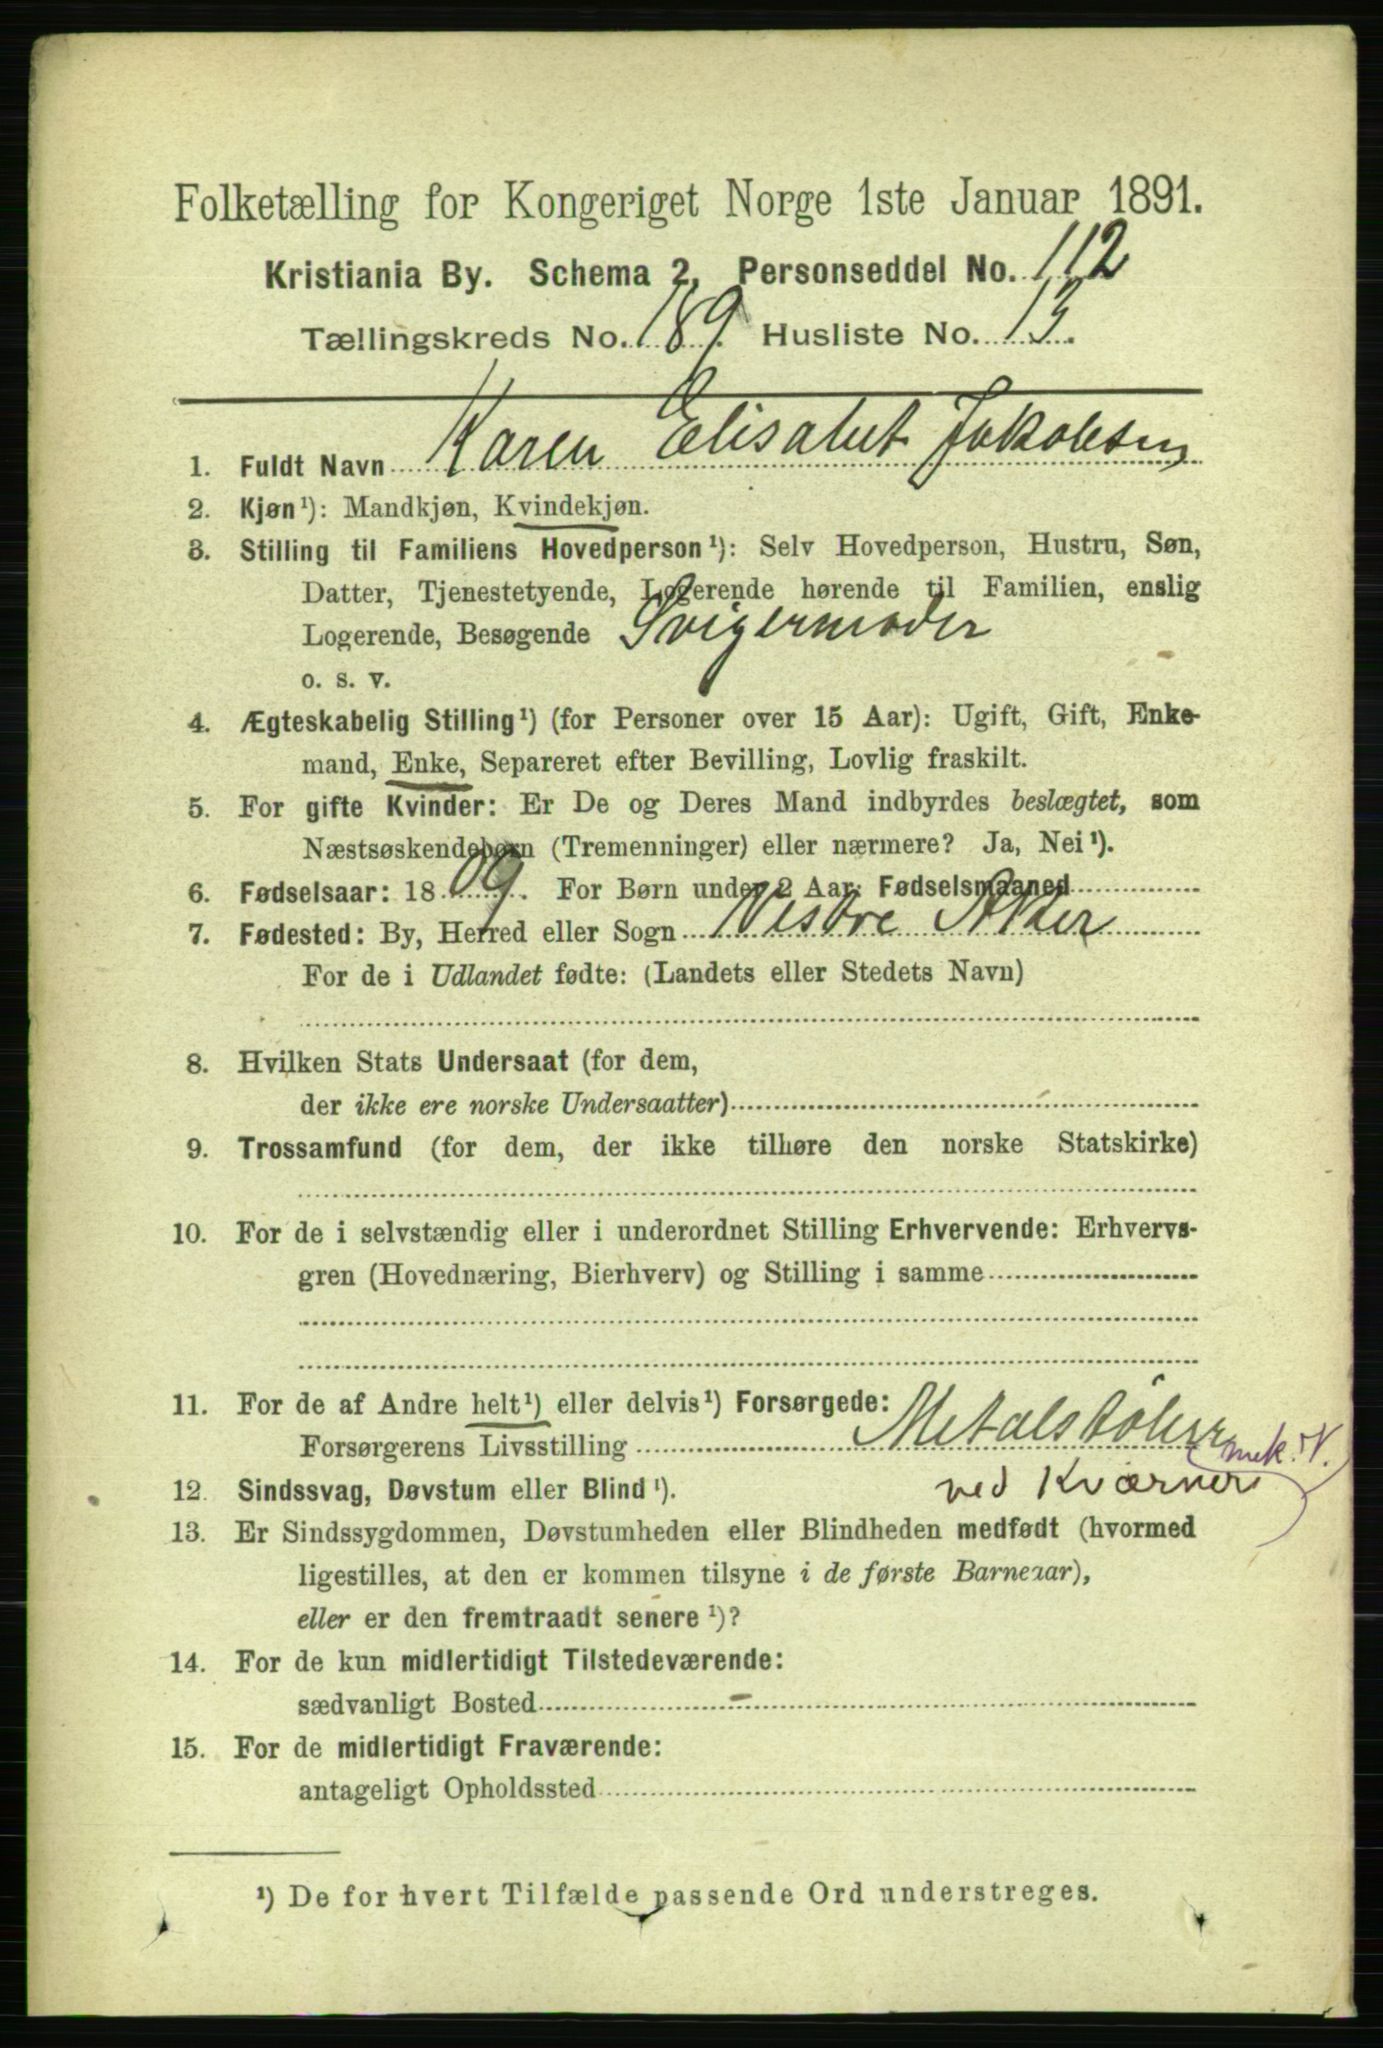 Folketælling for Kongeriget Norge 1ste Januar 1891.
Kristiania By. Schema 2. Personseddel No. 112
Tællingskreds No. 189. Husliste No. 13.
1. Fuldt Navn Karen Elisabet Jakobsen
2. Kjøn¹): Mandkjøn, Kvindekjøn.
3. Stilling til Familiens Hovedperson¹): Selv Hovedperson, Hustru, Søn,
Datter, Tjenestetyende, Logerende hørende til Familien, enslig
Logerende, Besøgende Svigermoder
o. s. v.
4. Ægteskabelig Stilling¹) (for Personer over 15 Aar): Ugift, Gift, Enke-
mand, Enke, Separeret efter Bevilling, Lovlig fraskilt.
5. For gifte Kvinder: Er De og Deres Mand indbyrdes beslægtet, som
Næstsøskendebørn (Tremenninger) eller nærmere? Ja, Nei¹).
6. Fødselsaar: 1809. For Børn under 2 Aar: Fødselsmaaned
7. Fødested: By, Herred eller Sogn Vestre Aker
For de i Udlandet fødte: (Landets eller Stedets Navn)
8. Hvilken Stats Undersaat (for dem,
der ikke ere norske Undersaatter)
9. Trossamfund (for dem, der ikke tilhøre den norske Statskirke)
10. For de i selvstændig eller i underordnet Stilling Erhvervende: Erhvervs-
gren (Hovednæring, Bierhverv) og Stilling i samme
11. For de af Andre helt¹) eller delvis¹) Forsørgede:
Forsørgerens Livsstilling Metalstöber mek. V.
ved Kværner
12. Sindssvag, Døvstum eller Blind¹).
13. Er Sindssygdommen, Døvstumheden eller Blindheden medfødt (hvormed
ligestilles, at den er kommen tilsyne i de første Barneaar),
eller er den fremtraadt senere¹)?
14. For de kun midlertidigt Tilstedeværende:
sædvanligt Bosted
15. For de midlertidigt Fraværende:
antageligt Opholdssted
¹) De for hvert Tilfælde passende Ord understreges.